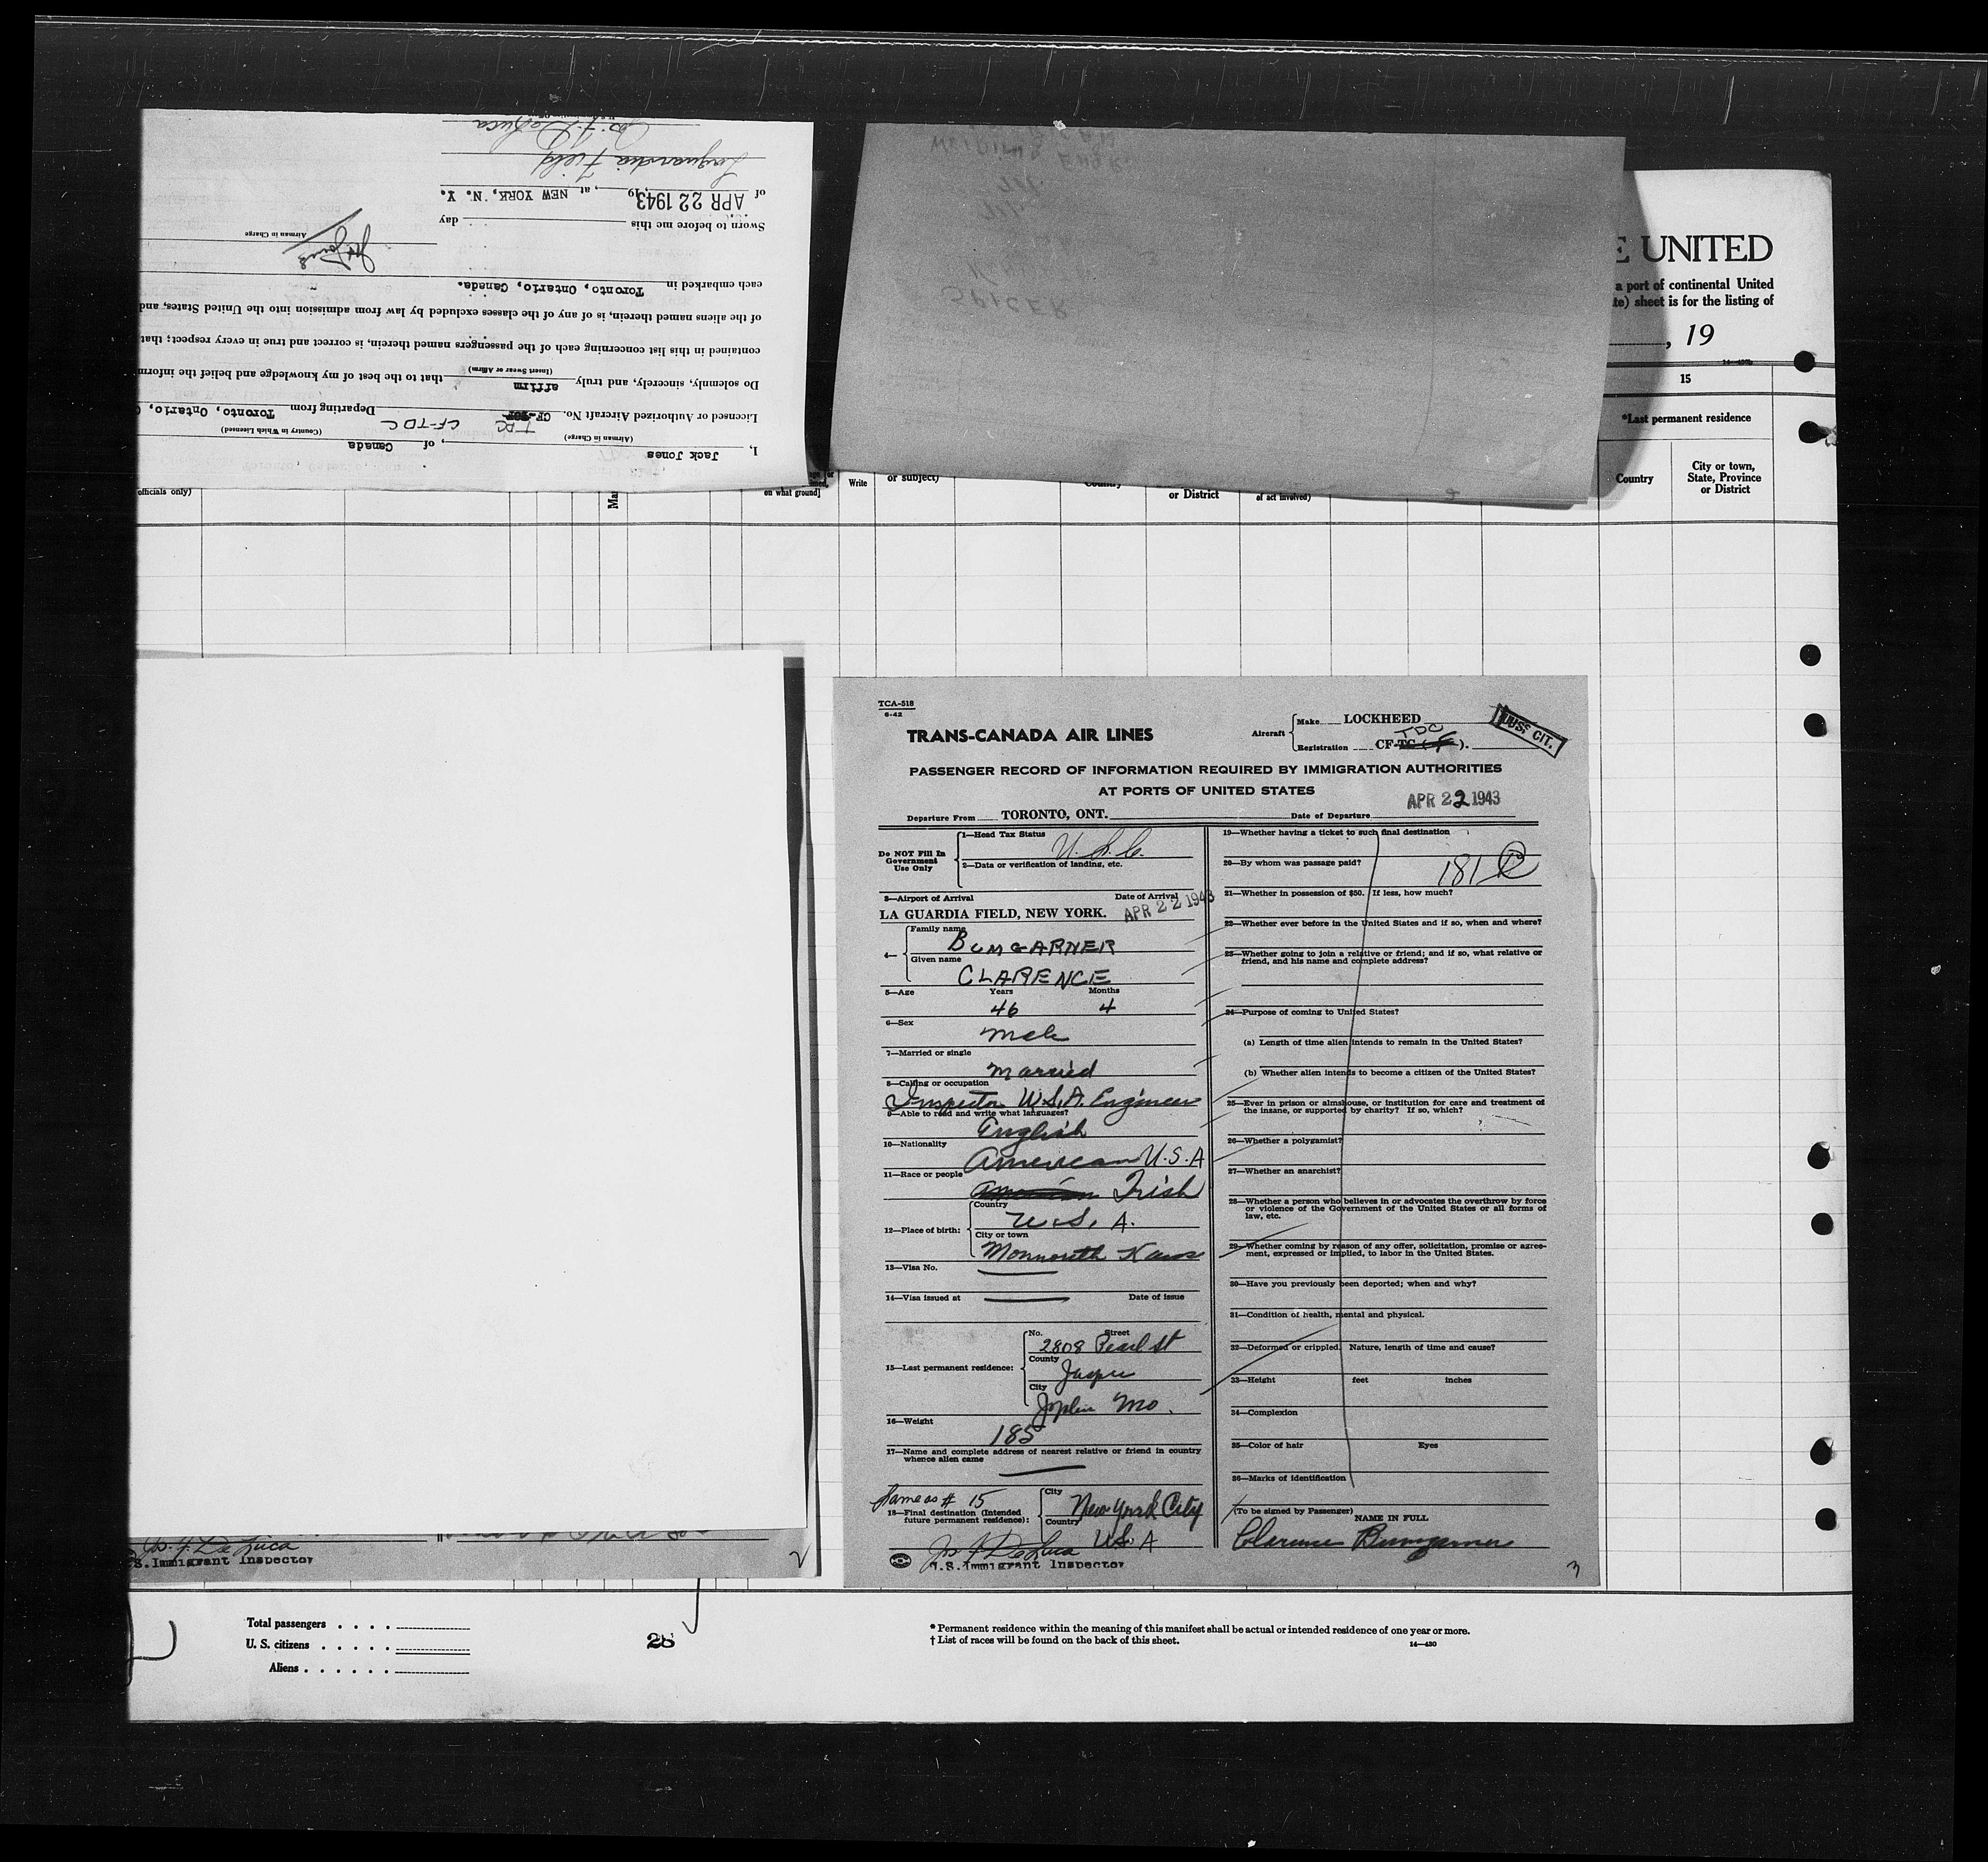 Laguardia Field
of APR 22 1943, 19, at NEW YORK, N. Y.
Sworn to before me this day
Airman in Charge
each embarked in Toronto, Ontario, Canada.
of the aliens named therein, is of any of the classes excluded by law from admission into the United States, and
contained in this list concerning each of the passengers named therein, is correct and true in every respect; that
(Insert Swear or Affirm)
Do solemnly, sincerely, and truly affirm that to the best of my knowledge and belief the inform
Licensed or Authorized Aircraft No. CF- TDC CF-TDC Departing from Toronto, Ontario, C
(Airman in Charge) (Country in Which Licensed)
I, Jack Jones, of Canada
SPICER
E UNITED
a port of continental United
te) sheet is for the listing of
, 19
15
*Last permanent residence
Country
City or town,
State, Province
or District
officials only)
on what ground]
Write
or subject)
Country
or District
of act involved)
TCA-518
6-42
TRANS-CANADA AIR LINES
Aircraft
Make LOCKHEED
Registration CF-TC ( ). TDC
CIT.
PASSENGER RECORD OF INFORMATION REQUIRED BY IMMIGRATION AUTHORITIES
AT PORTS OF UNITED STATES
APR 22 1943
Departure From TORONTO, ONT. Date of Departure
Do NOT Fill In
Government
Use Only
1—Head Tax Status
U.S.C.
2—Data or verification of landing, etc.
3—Airport of Arrival Date of Arrival
LA GUARDIA FIELD, NEW YORK. APR 22 1943
4—
Family name
BUMGARNER
Given name
CLARENCE
5—Age Years Months
46 4
6—Sex
Male
7—Married or single
Married
8—Calling or occupation
Inspector U.S.A. Engineer
9—Able to read and write what languages?
English
10—Nationality
American U.S.A
11—Race or people
American Irish
12—Place of birth:
Country
U.S.A.
City or town
Monmouth Kans
13—Visa No.
14—Visa issued at Date of issue
15—Last permanent residence:
No. Street
2808 Pearl St
County
Jasper
City
Joplin Mo.
16—Weight
185
17—Name and complete address of nearest relative or friend in country
whence alien came
Same as # 15
18—Final destination (Intended
future permanent residence):
City
New York City
Country
U.S.A
Jos. J. DeLuca
U.S. Immigrant Inspector
19—Whether having a ticket to such final destination
20—By whom was passage paid?
181
21—Whether in possession of $50. If less, how much?
22—Whether ever before in the United States and if so, when and where?
23—Whether going to join a relative or friend; and if so, what relative or
friend, and his name and complete address?
24—Purpose of coming to United States?
(a) Length of time alien intends to remain in the United States?
(b) Whether alien intends to become a citizen of the United States?
25—Ever in prison or almshouse, or institution for care and treatment of
the insane, or supported by charity? If so, which?
26—Whether a polygamist?
27—Whether an anarchist?
28—Whether a person who believes in or advocates the overthrow by force
or violence of the Government of the United States or all forms of
law, etc.
29—Whether coming by reason of any offer, solicitation, promise or agree-
ment, expressed or implied, to labor in the United States.
30—Have you previously been deported; when and why?
31—Condition of health, mental and physical.
32—Deformed or crippled. Nature, length of time and cause?
33—Height feet inches
34—Complexion
35—Color of hair Eyes
36—Marks of identification
(To be signed by Passenger)
NAME IN FULL
Clarence Bumgarner
3
Jos. J. DeLuca
S. Immigrant Inspector
2
Total passengers . . . .
U. S. citizens . . . . .
Aliens . . . . . .
28
* Permanent residence within the meaning of this manifest shall be actual or intended residence of one year or more.
† List of races will be found on the back of this sheet.
14—430